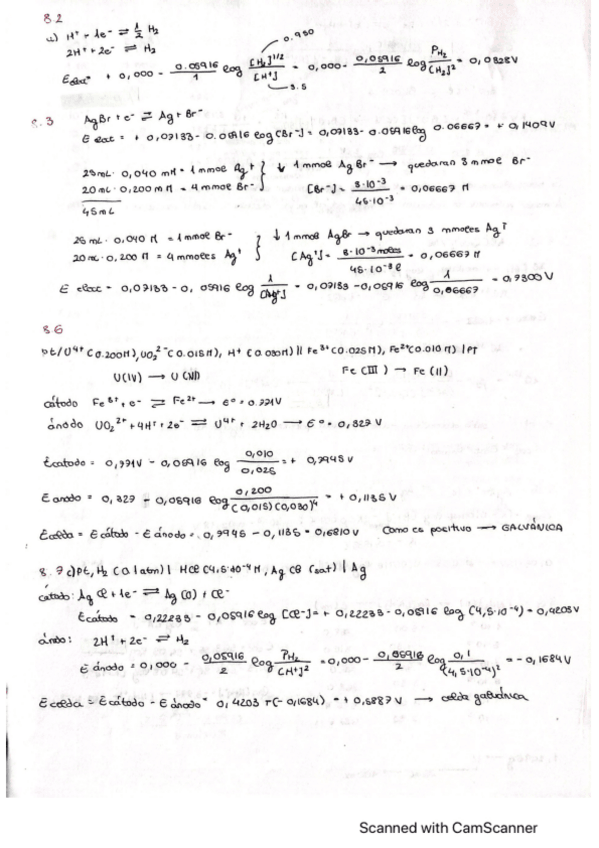 8.2
a) H⁺ + 1e⁻ ⇌ ½ H₂
2H⁺ + 2e⁻ ⇌ H₂
0.950
E elect = + 0,000 - 0.05916/1 log [H₂]^1/2/[H⁺] = 0,000 - 0,05916/2 log P_H₂/[H₂]² = 0,0828V
5.5
8.3 AgBr + e⁻ ⇌ Ag + Br⁻
E elect = + 0,07133 - 0.05916 log [Br⁻] = 0,07133 - 0.05916 log 0.06667 = + 0,1409V
25mL · 0,040 M = 1 mmol Ag⁺ } ↓ 1 mmol AgBr⁻ → quedaran 3 mmol Br⁻
20mL · 0,200 M = 4 mmol Br⁻ [Br⁻] = 3·10⁻³/45·10⁻³ = 0,06667 M
45mL
25 mL · 0,040 M = 1 mmol Br⁻ } ↓ 1 mmol AgBr → quedaran 3 mmoles Ag⁺
20mL · 0,200 M = 4 mmoles Ag⁺ [Ag⁺] = 3·10⁻³ moles/45·10⁻³ l = 0,06667 M
E elect = 0,07133 - 0,05916 log 1/[Ag⁺] = 0,07133 - 0,05916 log 1/0,06667 = 0,7300V
8.6
Pt/U⁴⁺ (0.200M), UO₂²⁻ (0.015M), H⁺ (0.030M) || Fe³⁺ (0.025M), Fe²⁺ (0.010M) | Pt
U(IV) → U(VI) Fe(III) → Fe(II)
cátodo Fe³⁺ + e⁻ ⇌ Fe²⁺ → E° = 0.771V
ánodo UO₂²⁺ + 4H⁺ + 2e⁻ ⇌ U⁴⁺ + 2H₂O → E° = 0,327V
E catodo = 0,771V - 0,05916 log 0,010/0,025 = + 0,7945V
E anodo = 0,327 - 0,05916 log 0,200/(0,015)(0,030)⁴ = + 0,1135V
E celda = E cátodo - E ánodo = 0,7945 - 0,1135 = 0,6810V Como es positivo → GALVÁNICA
8.7 c) Pt, H₂ (0.1 atm) | HCl (4,5·10⁻⁴M), AgCl (sat) | Ag
cátodo: AgCl + 1e⁻ ⇌ Ag(s) + Cl⁻
E cátodo = 0,22233 - 0,05916 log [Cl⁻] = + 0,22233 - 0,05916 log (4,5·10⁻⁴) = 0,4203V
ánodo: 2H⁺ + 2e⁻ ⇌ H₂
E ánodo = 0,000 - 0,05916/2 log P_H₂/[H⁺]² = 0,000 - 0,05916/2 log 0,1/(4,5·10⁻⁴)² = - 0,1684V
E celda = E cátodo - E ánodo = 0,4203 + (-0,1684) = + 0,5887V → celda galvánica
Scanned with CamScanner